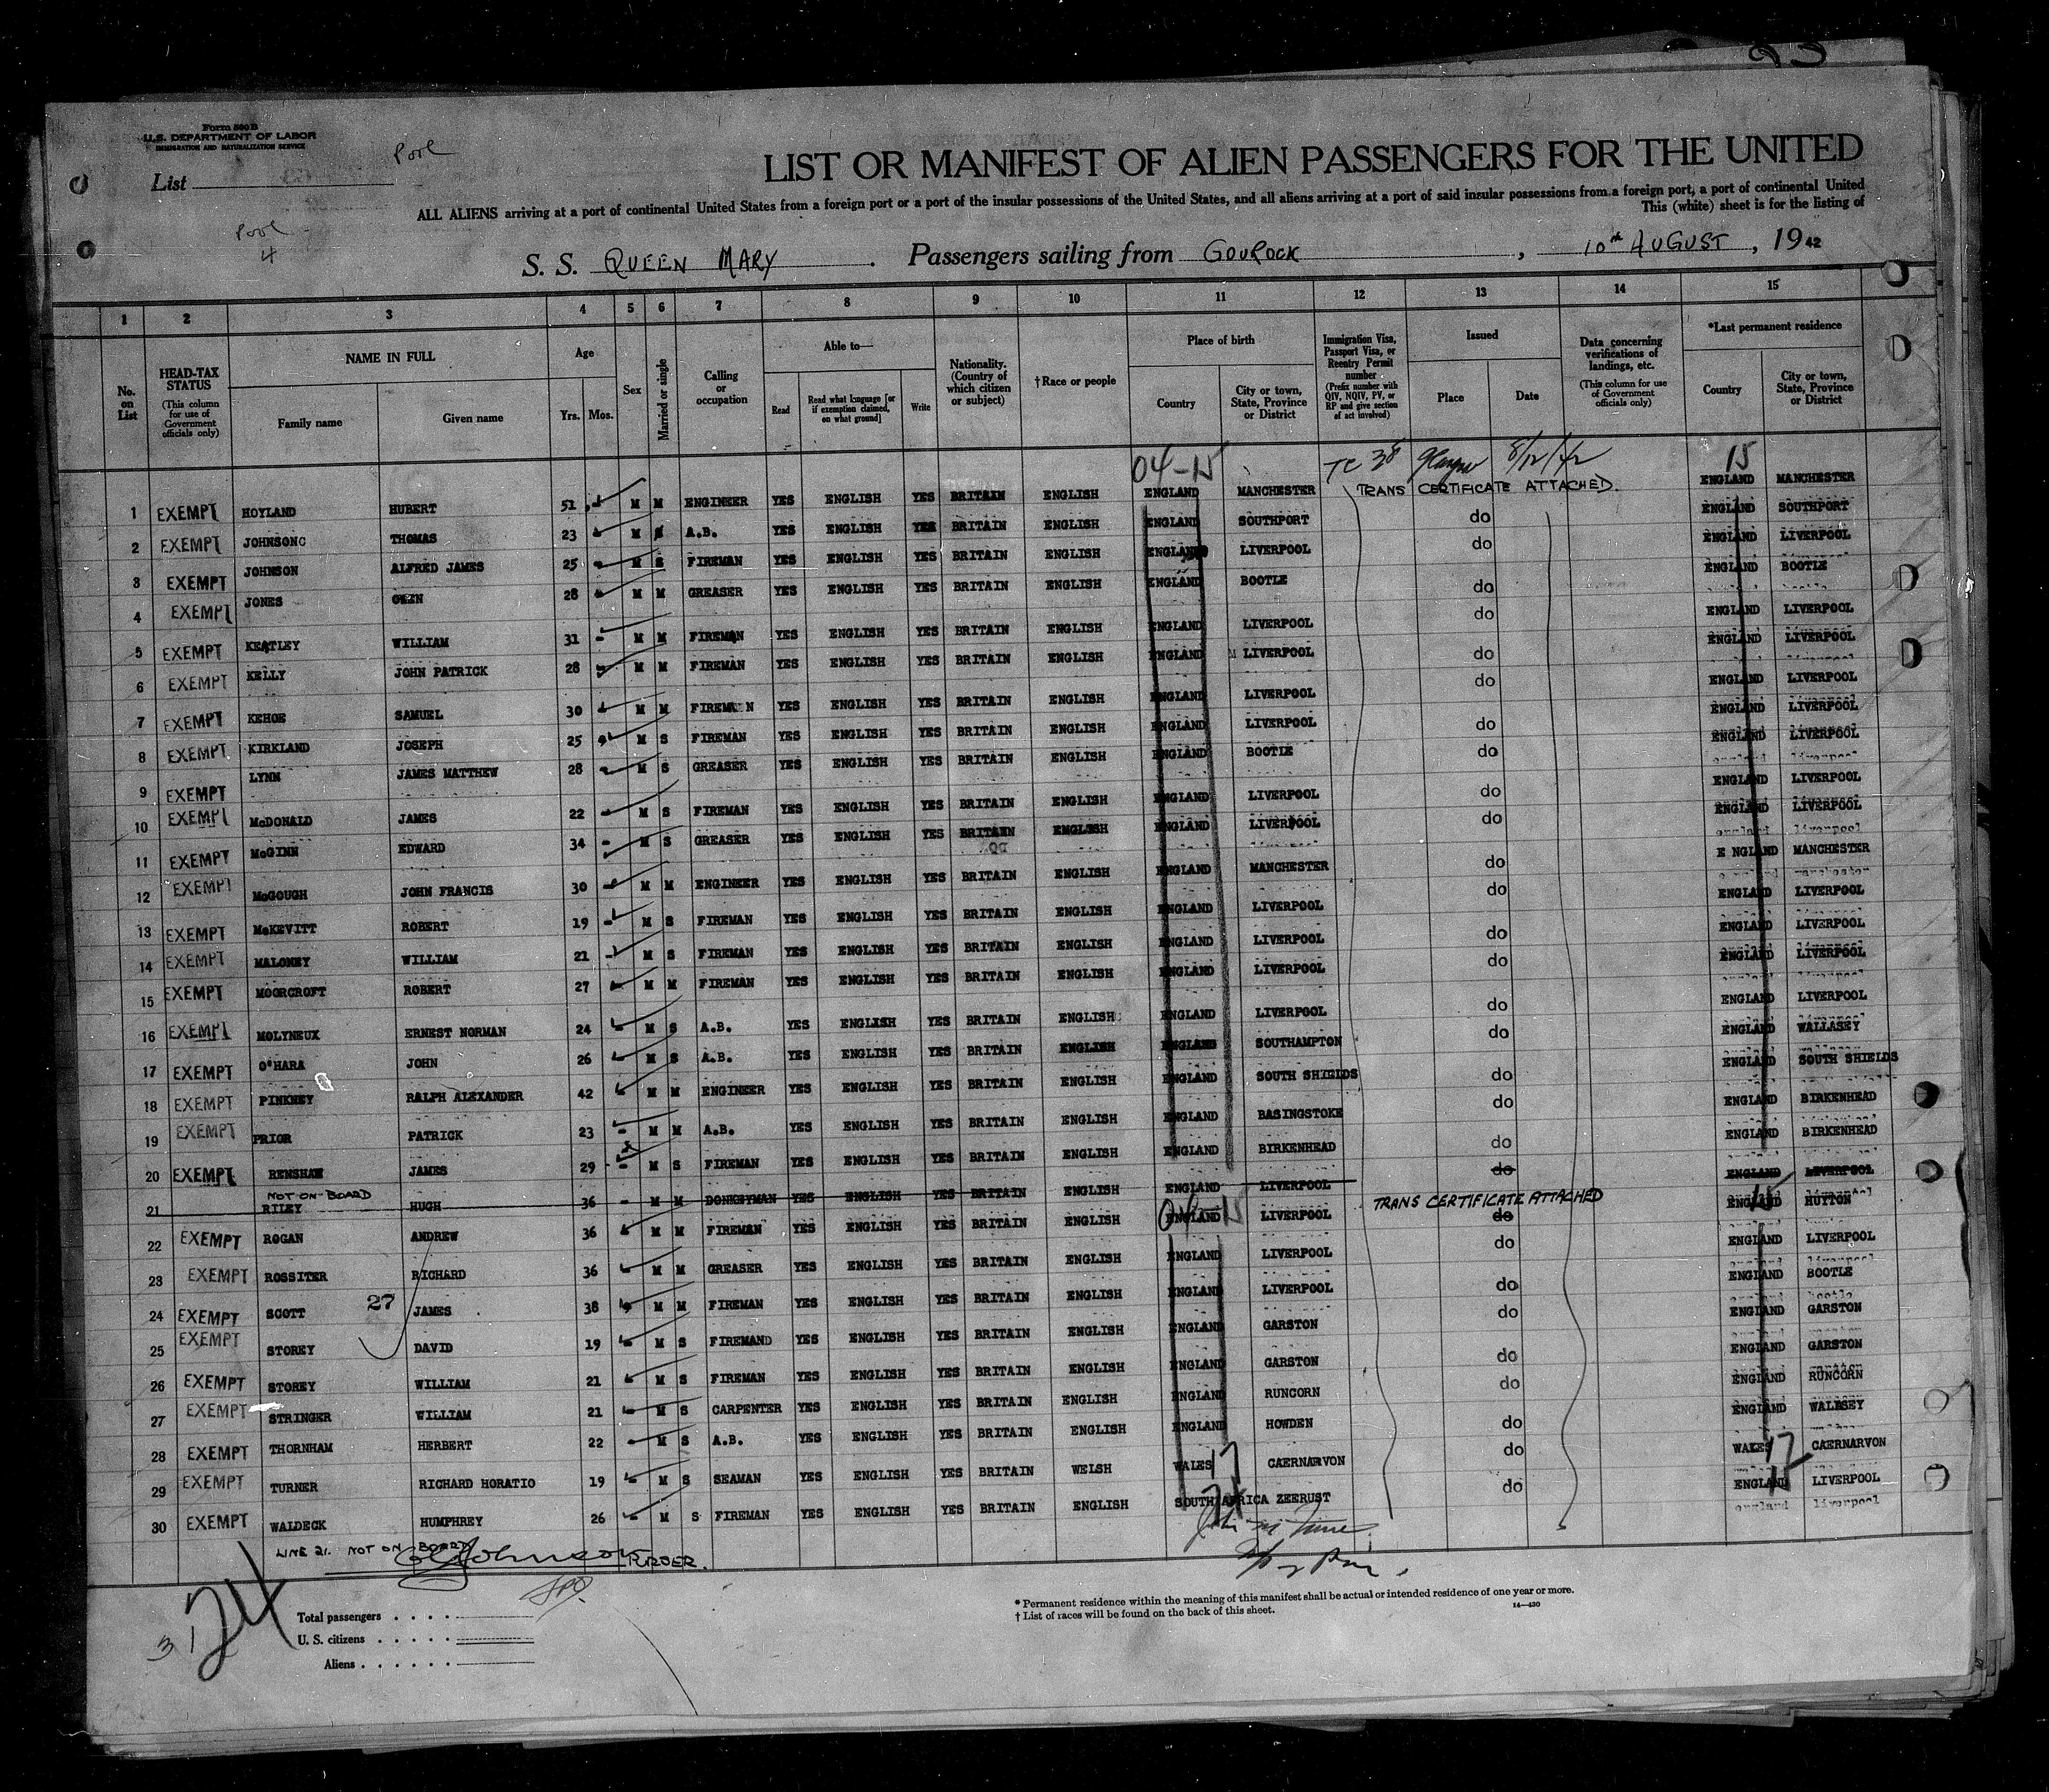 Form 500 B
U.S. DEPARTMENT OF LABOR
IMMIGRATION AND NATURALIZATION SERVICE
Pool
List
LIST OR MANIFEST OF ALIEN PASSENGERS FOR THE UNITED
ALL ALIENS arriving at a port of continental United States from a foreign port or a port of the insular possessions of the United States, and all aliens arriving at a port of said insular possessions from a foreign port, a port of continental United
This (white) sheet is for the listing of
Pool
4
S. S. QUEEN MARY . Passengers sailing from GOUROCK , 10th AUGUST , 19 42
1 2 3 4 5 6 7 8 9 10 11 12 13 14 15
No. on List
HEAD-TAX STATUS (This column for use of Government officials only)
NAME IN FULL Family name Given name
Age Yrs. Mos.
Sex
Married or single
Calling or occupation
Able to— Read Read what language [or if exemption claimed, on what ground] Write
Nationality. (Country of which citizen or subject)
† Race or people
Place of birth Country City or town, State, Province or District
Immigration Visa, Passport Visa, or Reentry Permit number (Prefix number with QIV, NQIV, PV, or RP and give section of act involved)
Issued Place Date
Data concerning verifications of landings, etc. (This column for use of Government officials only)
*Last permanent residence Country City or town, State, Province or District
04-15 TC 38 Glasgow 8/12/42 15
1 EXEMPT HOYLAND HUBERT 51 M M ENGINEER YES ENGLISH YES BRITAIN ENGLISH ENGLAND MANCHESTER TRANS CERTIFICATE ATTACHED. ENGLAND MANCHESTER
2 EXEMPT JOHNSONC THOMAS 23 M S A.B. YES ENGLISH YES BRITAIN ENGLISH ENGLAND SOUTHPORT do ENGLAND SOUTHPORT
3 EXEMPT JOHNSON ALFRED JAMES 25 M S FIREMAN YES ENGLISH YES BRITAIN ENGLISH ENGLAND LIVERPOOL do ENGLAND LIVERPOOL
4 EXEMPT JONES 28 M M GREASER YES ENGLISH YES BRITAIN ENGLISH ENGLAND BOOTLE do ENGLAND BOOTLE
5 EXEMPT KEATLEY WILLIAM 31 M M FIREMAN YES ENGLISH YES BRITAIN ENGLISH ENGLAND LIVERPOOL do ENGLAND LIVERPOOL
6 EXEMPT KELLY JOHN PATRICK 28 M M FIREMAN YES ENGLISH YES BRITAIN ENGLISH ENGLAND LIVERPOOL do ENGLAND LIVERPOOL
7 EXEMPT KEHOE SAMUEL 30 M M FIREMAN YES ENGLISH YES BRITAIN ENGLISH ENGLAND LIVERPOOL do ENGLAND LIVERPOOL
8 EXEMPT KIRKLAND JOSEPH 25 M S FIREMAN YES ENGLISH YES BRITAIN ENGLISH ENGLAND LIVERPOOL do ENGLAND LIVERPOOL
9 EXEMPT LYNN JAMES MATTHEW 28 M S GREASER YES ENGLISH YES BRITAIN ENGLISH ENGLAND BOOTLE do ENGLAND LIVERPOOL
10 EXEMPT McDONALD JAMES 22 M S FIREMAN YES ENGLISH YES BRITAIN ENGLISH ENGLAND LIVERPOOL do ENGLAND LIVERPOOL
11 EXEMPT McGINN EDWARD 34 M S GREASER YES ENGLISH YES BRITAIN ENGLISH ENGLAND LIVERPOOL do ENGLAND LIVERPOOL
12 EXEMPT McGOUGH JOHN FRANCIS 30 M M ENGINEER YES ENGLISH YES BRITAIN ENGLISH ENGLAND MANCHESTER do E NGLAND MANCHESTER
13 EXEMPT McKEVITT ROBERT 19 M S FIREMAN YES ENGLISH YES BRITAIN ENGLISH ENGLAND LIVERPOOL do ENGLAND LIVERPOOL
14 EXEMPT MALONEY WILLIAM 21 M S FIREMAN YES ENGLISH YES BRITAIN ENGLISH ENGLAND LIVERPOOL do ENGLAND LIVERPOOL
15 EXEMPT MOORCROFT ROBERT 27 M M FIREMAN YES ENGLISH YES BRITAIN ENGLISH ENGLAND LIVERPOOL do ENGLAND LIVERPOOL
16 EXEMPT MOLYNEUX ERNEST NORMAN 24 M S A.B. YES ENGLISH YES BRITAIN ENGLISH ENGLAND LIVERPOOL do ENGLAND LIVERPOOL
17 EXEMPT O'HARA JOHN 26 M S A.B. YES ENGLISH YES BRITAIN ENGLISH ENGLAND SOUTHAMPTON do ENGLAND WALLASEY
18 EXEMPT PINKNEY RALPH ALEXANDER 42 M M ENGINEER YES ENGLISH YES BRITAIN ENGLISH ENGLAND SOUTH SHIELDS do ENGLAND SOUTH SHIELDS
19 EXEMPT PRIOR PATRICK 23 M M A.B. YES ENGLISH YES BRITAIN ENGLISH ENGLAND BASINGSTOKE do ENGLAND BIRKENHEAD
20 EXEMPT RENSHAW JAMES 29 M S FIREMAN YES ENGLISH YES BRITAIN ENGLISH ENGLAND BIRKENHEAD do ENGLAND BIRKENHEAD
NOT ON BOARD
21 RILEY HUGH 36 M M DONKEYMAN YES ENGLISH YES BRITAIN ENGLISH ENGLAND LIVERPOOL do ENGLAND LIVERPOOL
04-15 15
22 EXEMPT ROGAN ANDREW 36 M M FIREMAN YES ENGLISH YES BRITAIN ENGLISH ENGLAND LIVERPOOL TRANS CERTIFICATE ATTACHED do ENGLAND HUYTON
23 EXEMPT ROSSITER RICHARD 36 M M GREASER YES ENGLISH YES BRITAIN ENGLISH ENGLAND LIVERPOOL do ENGLAND LIVERPOOL
24 EXEMPT SCOTT 27 JAMES 38 M M FIREMAN YES ENGLISH YES BRITAIN ENGLISH ENGLAND LIVERPOOL do ENGLAND BOOTLE
25 EXEMPT STOREY DAVID 19 M S FIREMAND YES ENGLISH YES BRITAIN ENGLISH ENGLAND GARSTON do ENGLAND GARSTON
26 EXEMPT STOREY WILLIAM 21 M S FIREMAN YES ENGLISH YES BRITAIN ENGLISH ENGLAND GARSTON do ENGLAND GARSTON
27 EXEMPT STRINGER WILLIAM 21 M S CARPENTER YES ENGLISH YES BRITAIN ENGLISH ENGLAND RUNCORN do ENGLAND RUNCORN
28 EXEMPT THORNHAM HERBERT 22 M S A.B. YES ENGLISH YES BRITAIN ENGLISH ENGLAND HOWDEN do ENGLAND
29 EXEMPT TURNER RICHARD HORATIO 19 M S SEAMAN YES ENGLISH YES BRITAIN WELSH WALES 17 CAERNARVON do WALES 17 CAERNARVON
30 EXEMPT WALDECK HUMPHREY 26 M S FIREMAN YES ENGLISH YES BRITAIN ENGLISH SOUTH AFRICA ZEERUST do ENGLAND LIVERPOOL
LINE 21. NOT ON BOARD Johnson PURSER.
31 24
Total passengers
U. S. citizens
Aliens
* Permanent residence within the meaning of this manifest shall be actual or intended residence of one year or more.
† List of races will be found on the back of this sheet.
14—430